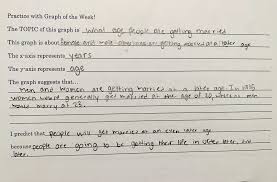 Practice with Graph of the Week!
The TOPIC of this graph is what age people are getting married
This graph is about female and male on getting married at a later age
The x-axis represents years
The y-axis represents age
The graph suggests that...
men and women are getting married at a later age. In 1975
women would generally get married at the age of 20, while men
would marry at 23.
I predict that people will get married at an even later age
because people are going to be getting their life in order later, too
later.